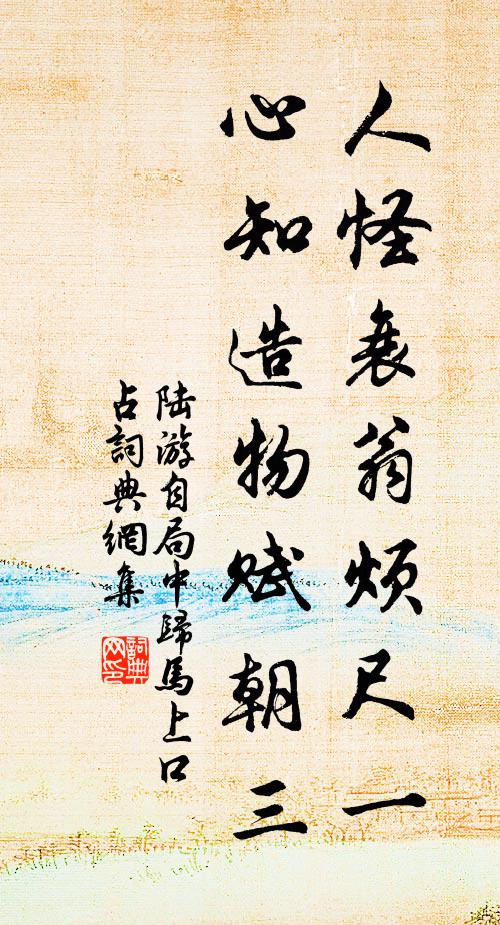 人怪衰翁烦尺一
心知造物赋朝三
陆游自局中歸馬上口
占詞典網集
詞典
网印